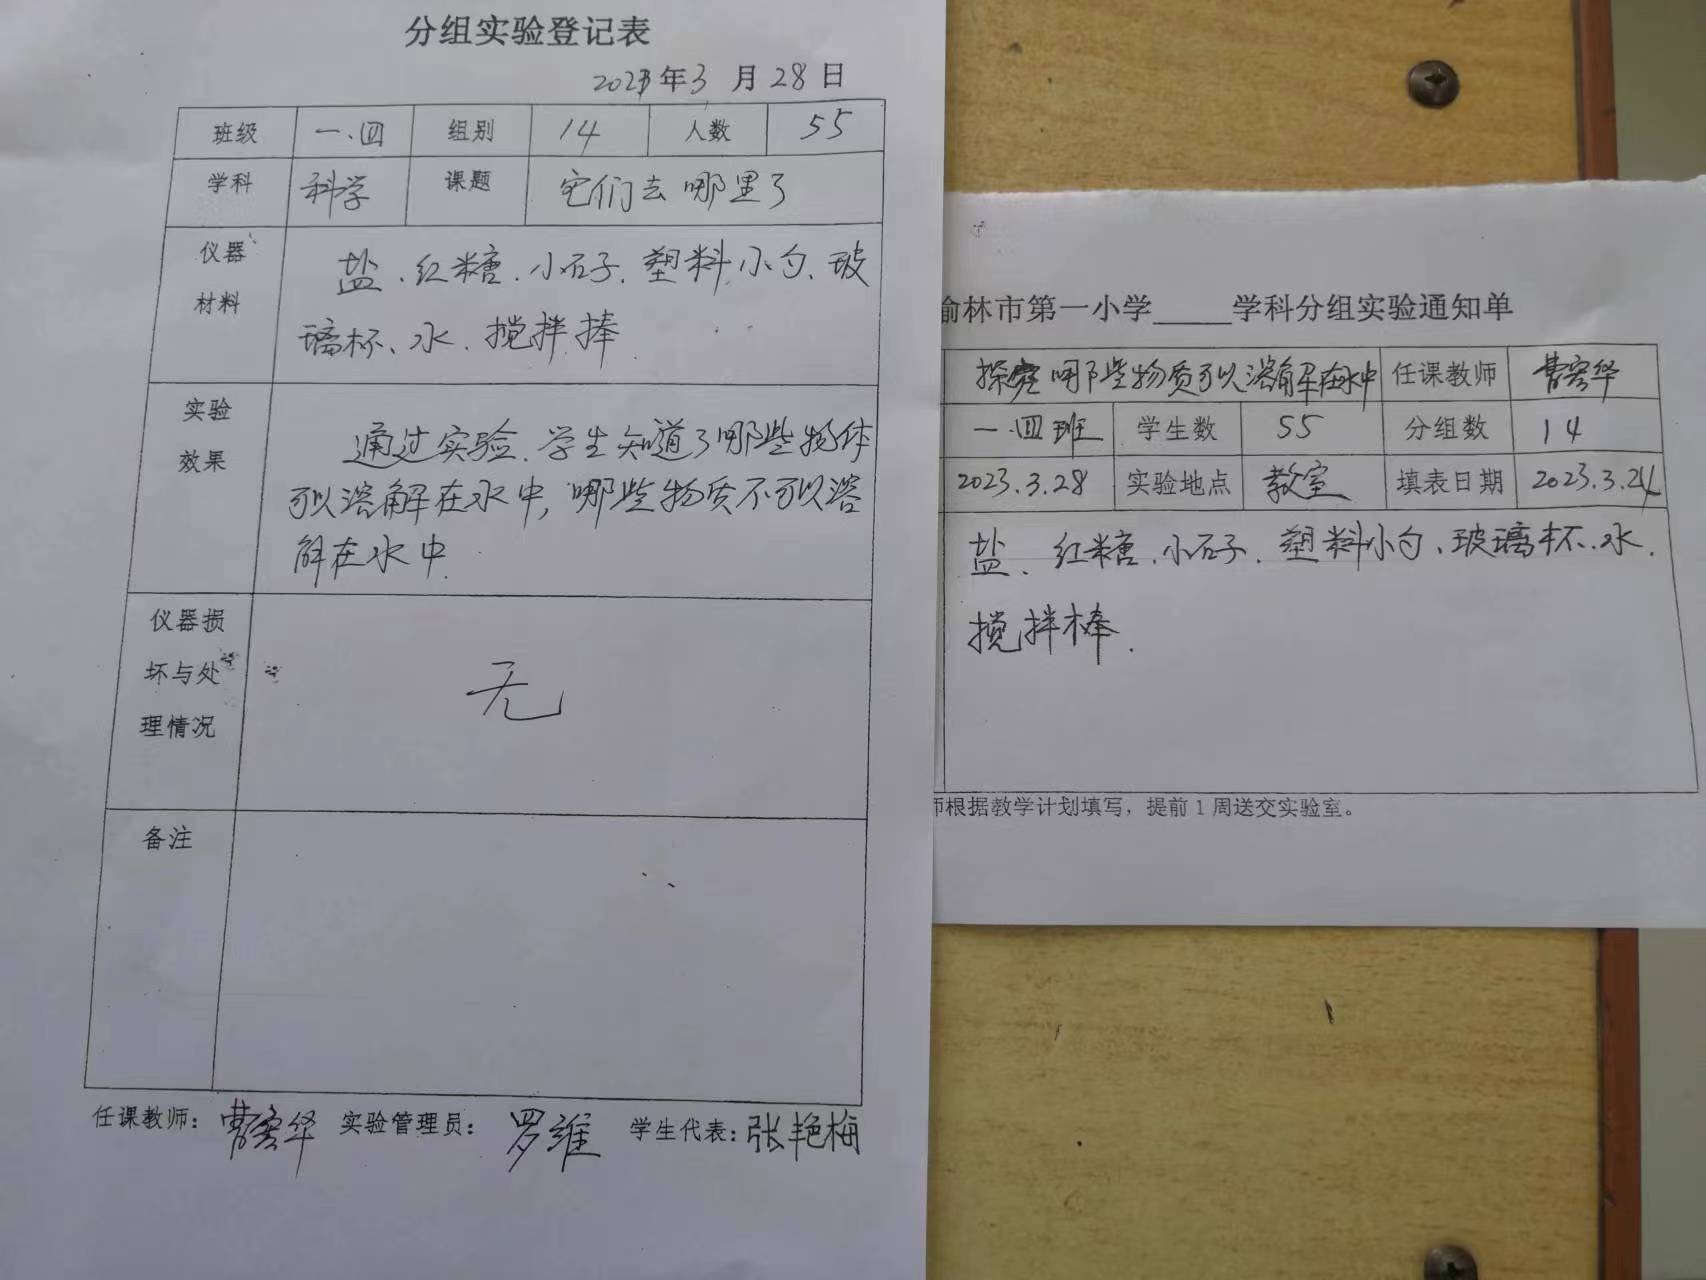 分组实验登记表
2023年3月28日
班级 一.四 组别 14 人数 55
学科 科学 课题 它们去哪里了
仪器材料
盐、红糖、小石子、塑料小勺、玻
璃杯、水、搅拌棒
实验效果
通过实验,学生知道了哪些物体
可以溶解在水中,哪些物质不可以溶
解在水中.
仪器损坏与处理情况
无
备注
任课教师: 曹 华 实验管理员: 罗维 学生代表: 张艳梅
榆林市第一小学_____学科分组实验通知单
探究哪些物质可以溶解在水中 任课教师 曹 华
一.四班 学生数 55 分组数 14
2023.3.28 实验地点 教室 填表日期 2023.3.24
盐、红糖、小石子、塑料小勺、玻璃杯、水、
搅拌棒.
师根据教学计划填写,提前1周送交实验室。